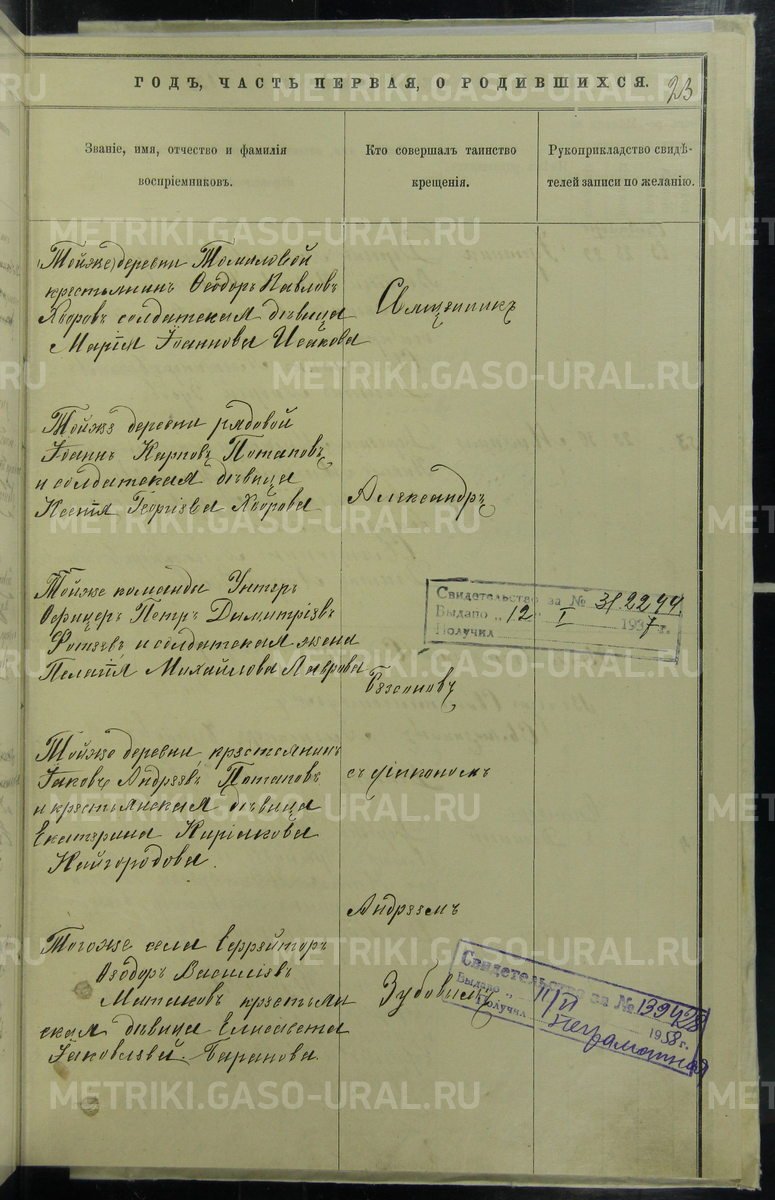 ГОДЪ, ЧАСТЬ ПЕРВАЯ, О РОДИВШИХСЯ.
23
Званіе, имя, отчество и фамилія
воспріемниковъ.
Кто совершалъ таинство
крещенія.
Рукоприкладство свидѣ-
телей записи по желанію.
Тойже деревни Томиловой
крестьянинъ Ѳеодоръ Павловъ
Хворовъ солдатская дѣвица
Марія Іоаннова Исакова
Священникъ
Тойже деревни рядовой
Іоаннъ Карповъ Потаповъ
и солдатская дѣвица
Ксенія Георгіева Хворова
Александръ
Тойже команды Унтеръ
Офицеръ Петръ Димитріевъ
и солдатская жена
Пелагія Михайлова Лаврова
Свидетельство за № 312244
Выдано „12“ I 1937 г.
Получил
Безсоновъ
Тойже деревни крестьянинъ
Іаковъ Андреевъ Потаповъ
и крестьянская дѣвица
Екатерина Киріакова
Кайгородова.
съ діакономъ
Андреемъ
Тогоже села Ефрейторъ
Ѳеодоръ Василіевъ
крестьян
ская дѣвица Елисавета
Іаковлева Баранова.
Зубовымъ
Свидетельство за № 139428
Выдано „11/VI 1958 г.
Получил неграмотная
METRIKI.GASO-URAL.RU